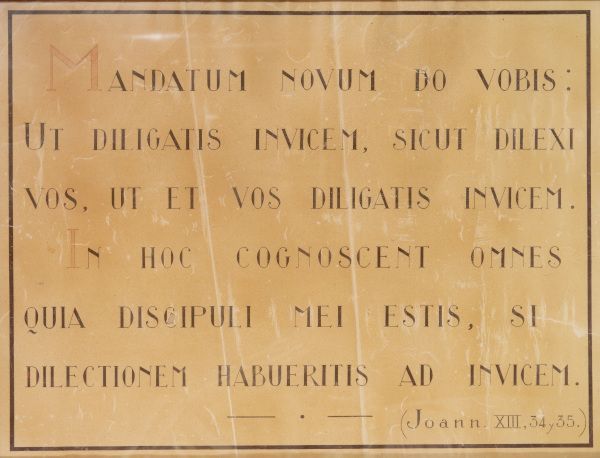 MANDATUM NOVUM DO VOBIS:
UT DILIGATIS INVICEM, SICUT DILEXI
VOS, UT ET VOS DILIGATIS INVICEM.
IN HOC COGNOSCENT OMNES
QUIA DISCIPULI MEI ESTIS, SI
DILECTIONEM HABUERITIS AD INVICEM.
(Joann. XIII, 34 y 35.)